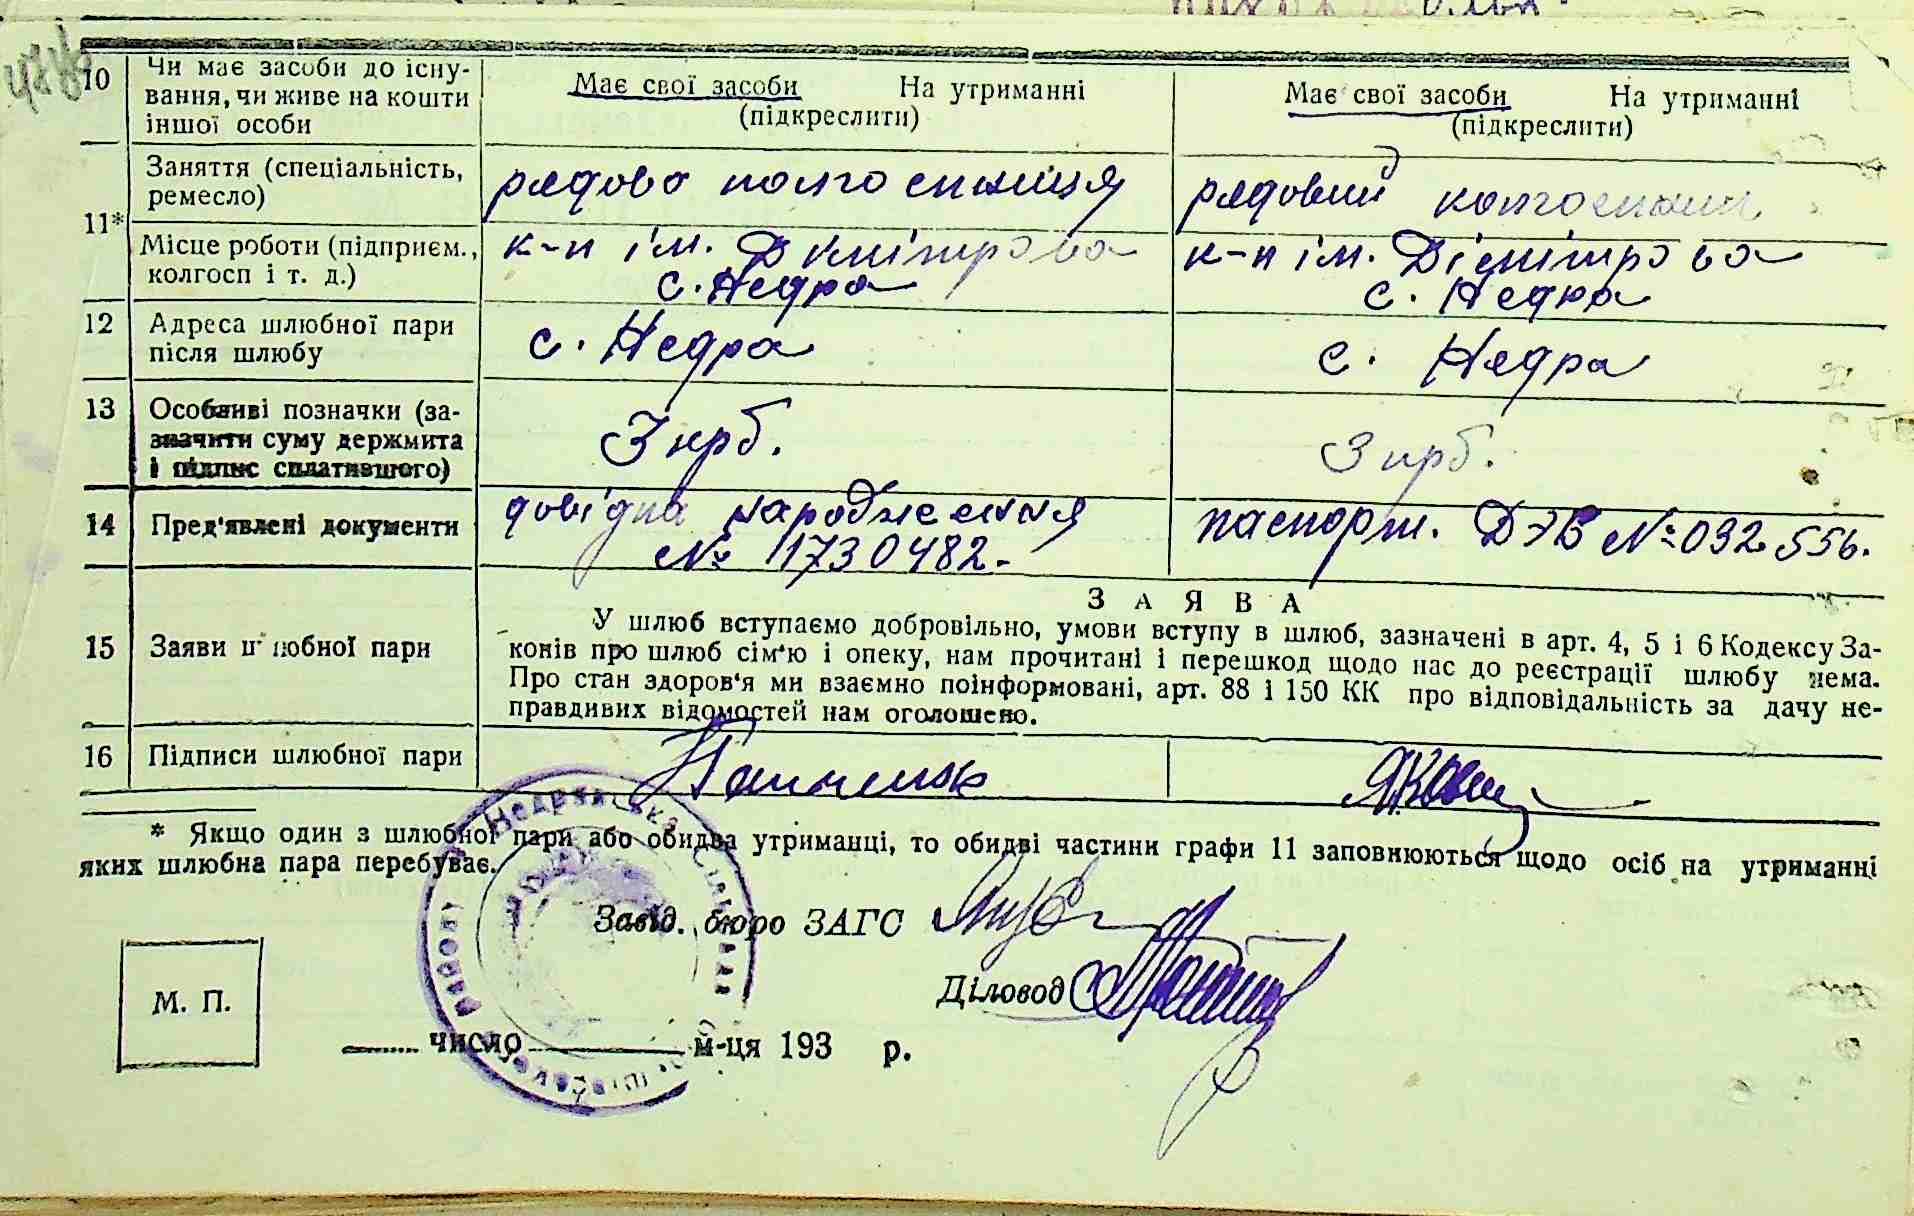 10 Чи має засоби до існу-
вання, чи живе на кошти
іншої особи
Має свої засоби На утриманні
(підкреслити)
Має свої засоби На утриманні
(підкреслити)
11*
Заняття (спеціальність,
ремесло)
рядова колгоспниця
рядовий колгоспник
Місце роботи (підприєм.,
колгосп і т. д.)
к-п ім. Дімітрова
с. Недра
к-п ім. Дімітрова
с. Недра
12 Адреса шлюбної пари
після шлюбу
с. Недра
с. Недра
13 Особливі позначки (за-
значити суму держмита
і підпис сплатившого)
3 крб.
3 крб.
14 Пред'явлені документи
довідка народження
№ 1730482.-
паспорт. ДЭВ №032556.
15 Заяви шлюбної пари
ЗАЯВА
У шлюб вступаємо добровільно, умови вступу в шлюб, зазначені в арт. 4, 5 і 6 Кодексу За-
конів про шлюб сім'ю і опеку, нам прочитані і перешкод щодо нас до реєстрації шлюбу нема.
Про стан здоров'я ми взаємно поінформовані, арт. 88 і 150 КК про відповідальність за дачу не-
правдивих відомостей нам оголошено.
16 Підписи шлюбної пари
* Якщо один з шлюбної пари або обидва утриманці, то обидві частини графи 11 заповнюються щодо осіб на утриманні
яких шлюбна пара перебуває.
Завід. бюро ЗАГС
Діловод
М. П.
число м-ця 193 р.